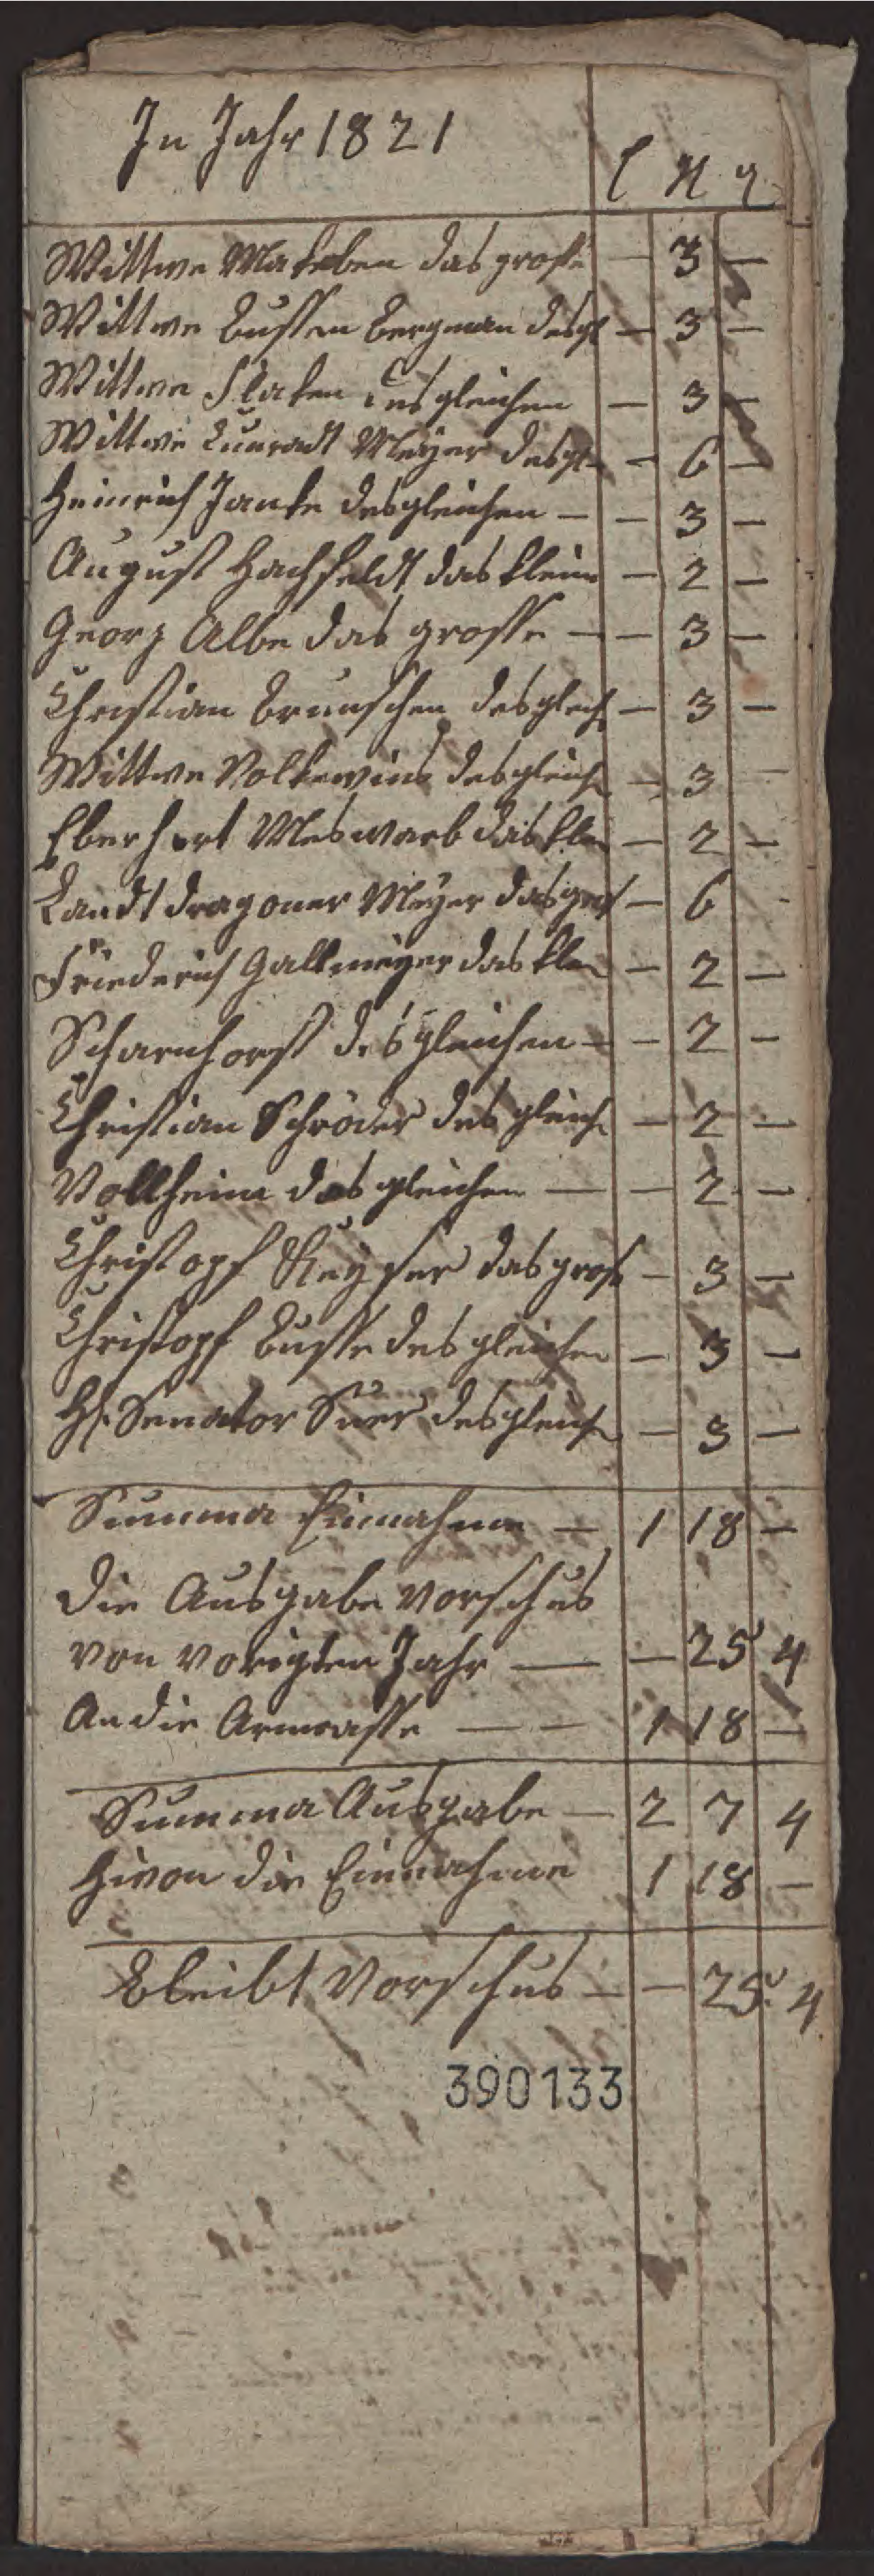 In Jahr 1821
Wittwe Makeben das grosse — 3 —
Wittwe Bussen Bergman desgl — 3 —
Wittwe Flaken desgleichen — 3 —
Wittwe Cunradt Meyer desgl — 6 —
Heinrich Janke desgleichen — — 3 —
August Hachfeldt das kleine — 2 —
Georg Albe das grosse — — 3 —
Christian Brunschen desgleich — 3 —
Wittwe Volkewins desgleich — 3 —
Eberhert Meswarb das kle — 2 —
Landt dragoner Meyer das gros — 6 -
Friederich Gallmeyer das kle — 2 —
Scharnhorst desgleichen — — 2 —
Christian Schröder desgleich — 2 —
Vollheim desgleichen — — 2 —
Christopf Keyser das gross — 3 —
Christopf Busse desgleichen — 3 —
H. Senator Suer desgleich — 3 —
Summa Einnahme — 1 18 —
die Ausgabe Vorschus
von vorigten Jahr — — 25 4
An die Armcasse — — 1 18 —
Summa Ausgabe — 2 7 4
Hivon die Einnahme 1 18 —
Bleibt Vorschus — — 25. 4
390133